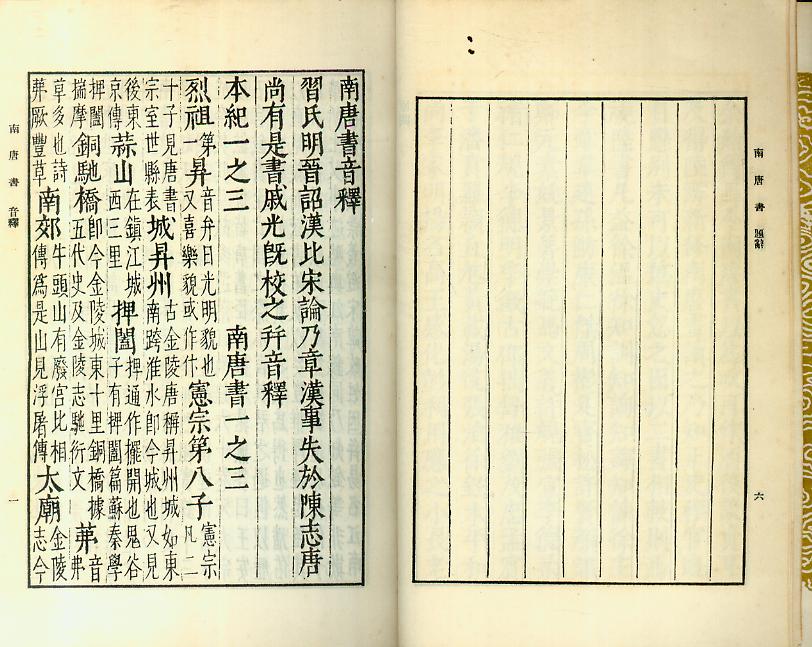 南唐書 題辭
六
南唐書音釋
習氏明晉詔漢比宋論乃章漢事失於陳志唐
尚有是書戚光旣校之幷音釋
本紀一之三 南唐書一之三
烈祖第一昪音弁日光明貌也又喜樂貌或作忭憲宗第八子憲宗凡二
十子見唐書宗室世縣表城昇州古金陵唐稱昇州城如東南跨淮水卽今城也又見
後東京傳蒜山在鎮江城西三里捭闔捭通作擺開也鬼谷子有捭闔篇蘇秦學
捭闔揣摩銅駞橋卽今金陵城東十里銅橋據五代史及金陵志駞衍文茀音弗
草多也詩茀厥豐草南郊牛頭山有廢宮比相傳爲是山見浮屠傳太廟金陵志今
南唐書 音釋
一